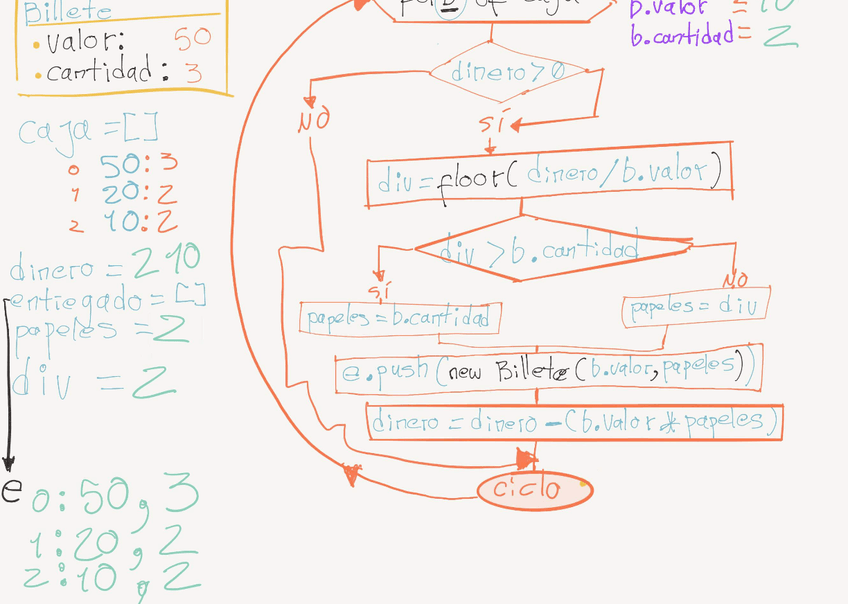 Billete
• valor: 50
• cantidad: 3
caja = []
0 50:3
1 20:2
2 10:2
dinero = 210
entregado = []
papeles = 2
div = 2
e 0:50,3
1:20,2
2:10,2
for b of caja
dinero > 0
NO
SÍ
div = floor( dinero / b.valor )
div > b.cantidad
SÍ
NO
papeles = b.cantidad
papeles = div
e.push (new Billete (b.valor, papeles))
dinero = dinero - (b.valor * papeles)
ciclo
b.valor = 10
b.cantidad = 2